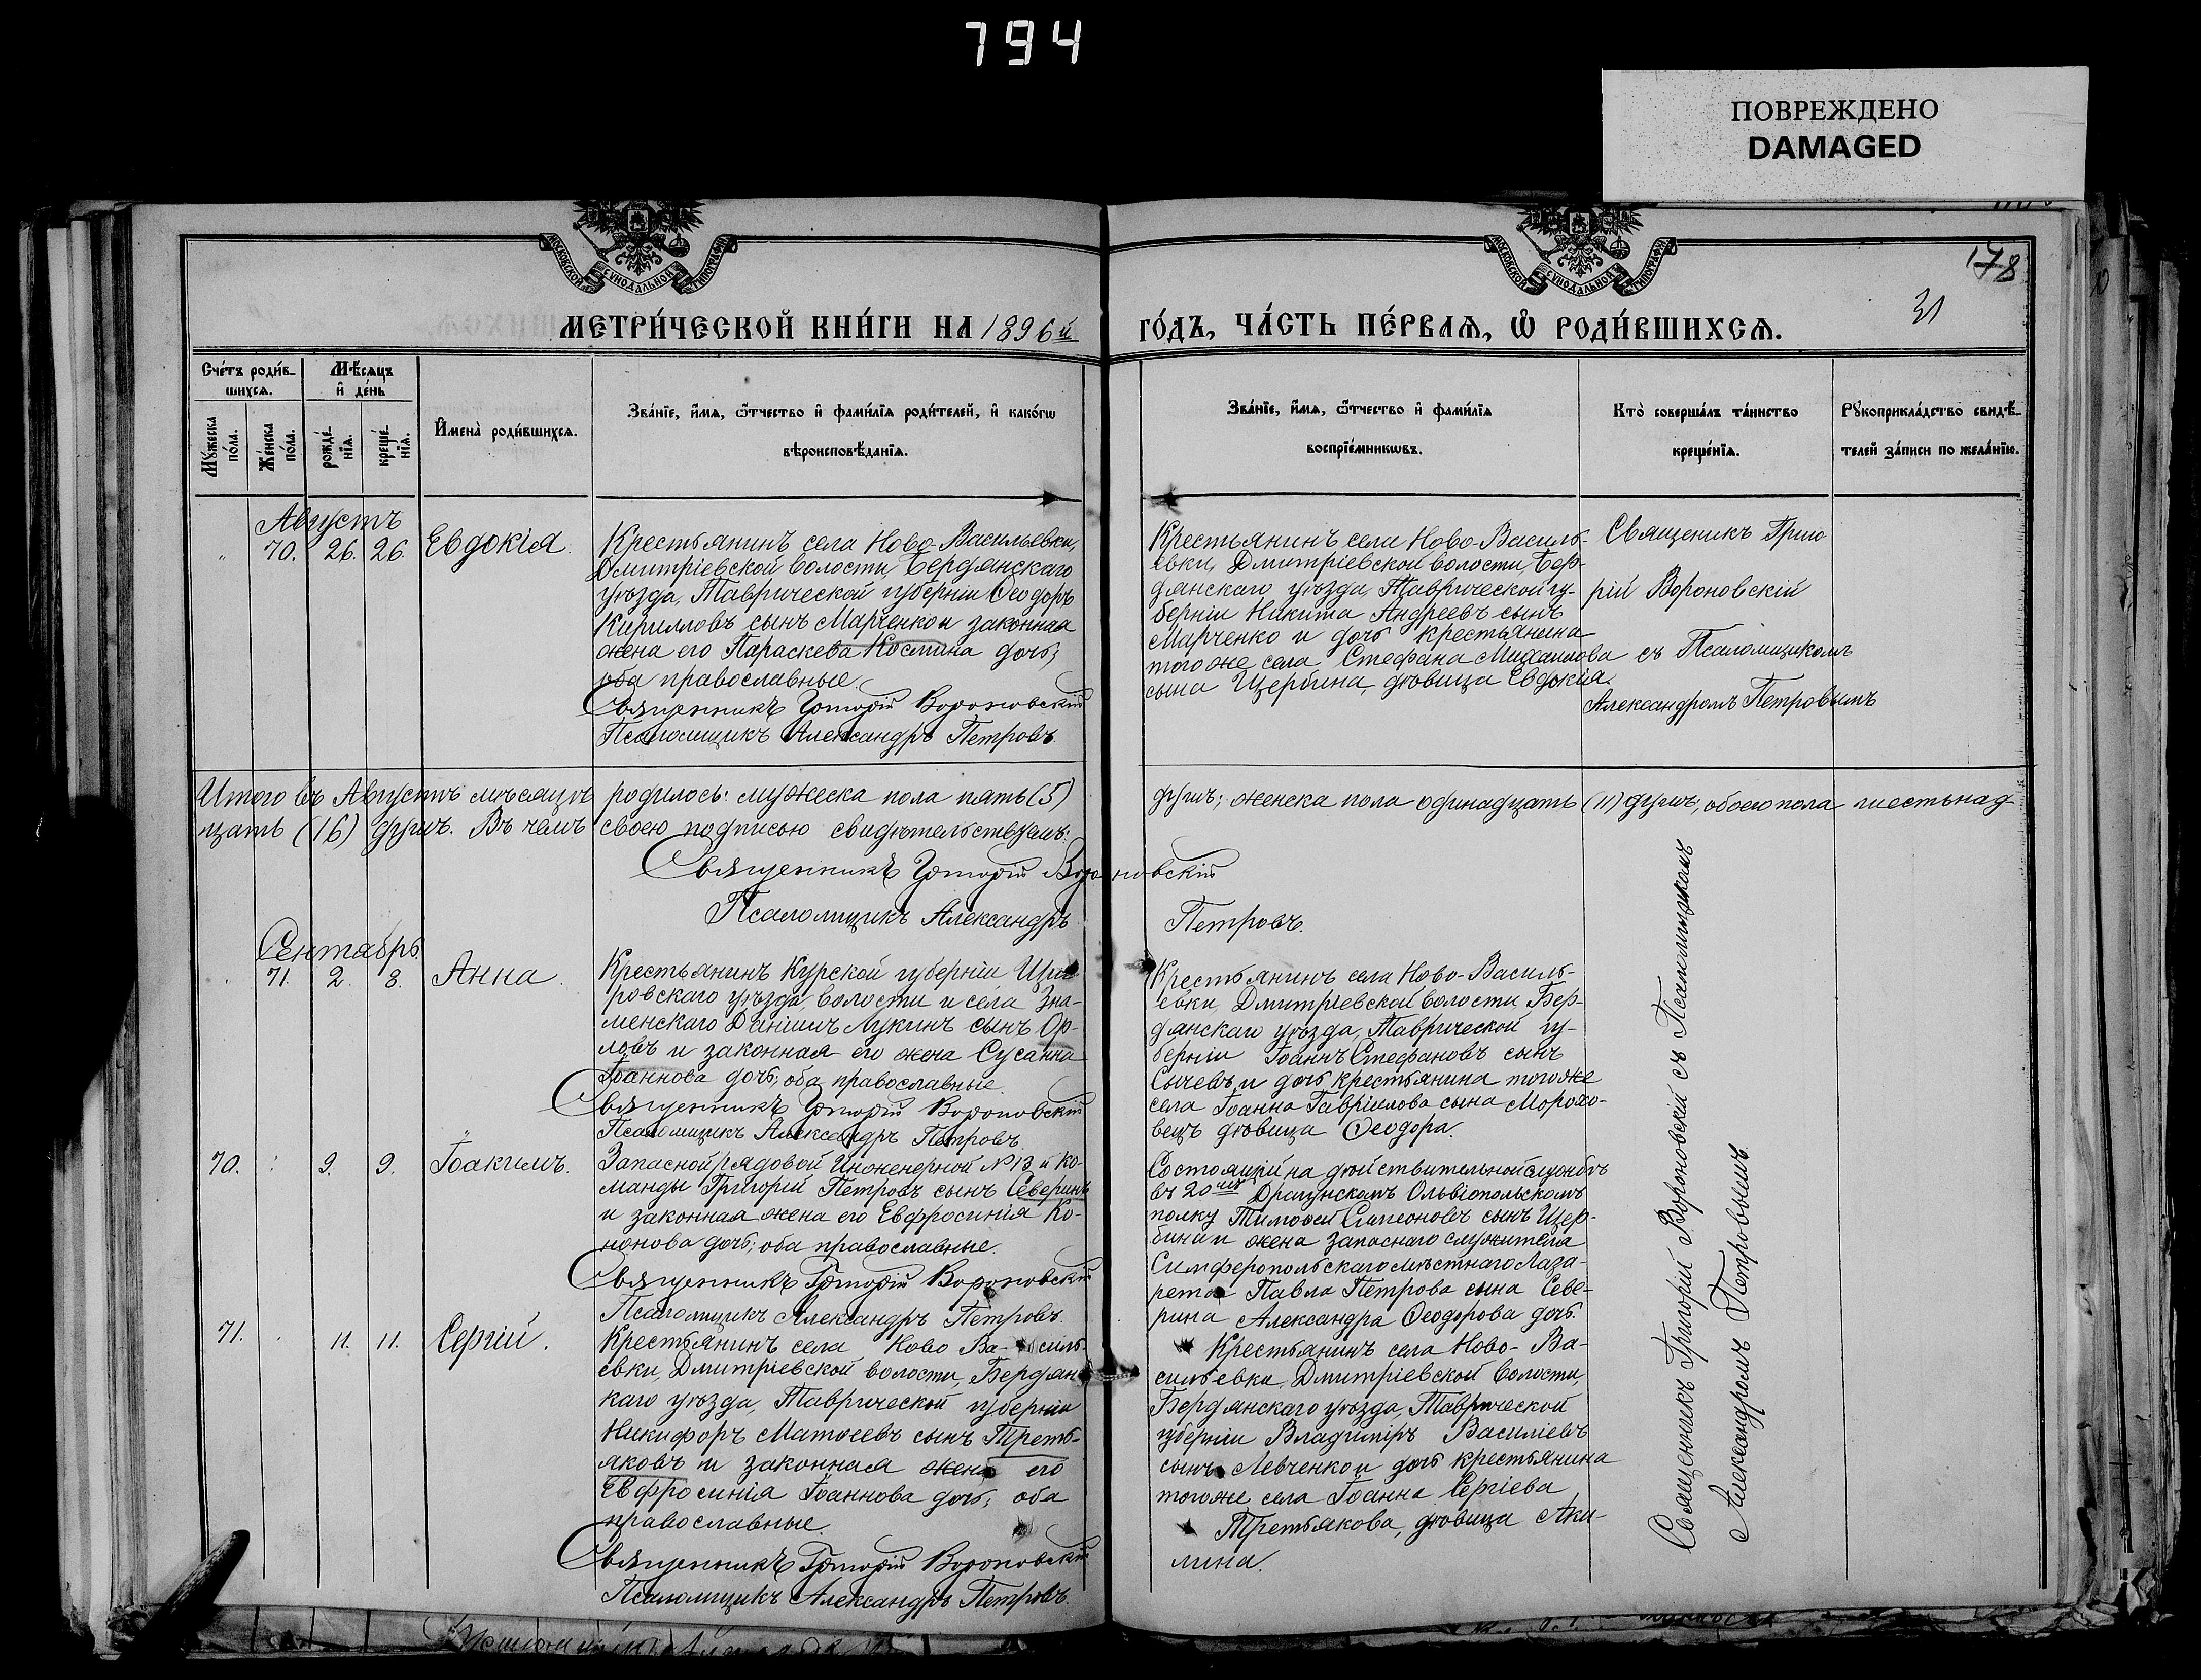 794
ПОВРЕЖДЕНО
DAMAGED
МОСКОВСКОЙ СУНОДАЛЬНОЙ ТИПОГРАФІИ
МОСКОВСКОЙ СУНОДАЛЬНОЙ ТИПОГРАФІИ
178
31
МЕТРИ́ЧЕСКОЙ КНИ́ГИ НА 1896й
ГО́ДЪ, ЧА́СТЬ ПЕ́РВАѦ, Ѡ҆ РОДИ́ВШИХСѦ.
Сче́тъ роди́в-
шихсѧ.
Мꙋ́жеска
по́ла.
Же́нска
по́ла.
Мѣ́сѧцъ
и҆ де́нь
рожде́-
нїѧ.
креще́-
нїѧ.
И҆мена̀ роди́вшихсѧ.
Зва́нїе, и҆́мѧ, ѻ҆́тчество и҆ фами́лїѧ роди́телей, и҆ како́гѡ
вѣроисповѣ́данїѧ.
Зва́нїе, и҆́мѧ, ѻ҆́тчество и҆ фами́лїѧ
воспрїе́мникѡвъ.
Кто̀ соверша́лъ та́инство
креще́нїѧ.
Рꙋкоприкла́дство свидѣ́-
телей за́писи по жела́нїю.
Августъ
70. 26. 26. Евдокія.
Крестьянинъ села Ново-Васильевки,
Дмитріевской волости, Бердянскаго
уѣзда, Таврической губерніи Ѳеодоръ
Кирилловъ сынъ Марченко и законная
жена его Параскева Косьмина дочь;
оба православные.
Священникъ Григорій Вороновскій
Псаломщикъ Александръ Петровъ
Крестьянинъ села Ново-Василь-
евки, Дмитріевской волости, Бер-
дянскаго уѣзда, Таврической гу-
берніи Никита Андреевъ сынъ
Марченко и дочь крестьянина
того же села Стефана Михаилова
сына Щербина, дѣвица Евдокия.
Священикъ Григо
рій Вороновскій
съ Псаломщикомъ
Александромъ Петровымъ
Итого въ Августѣ мѣсяцѣ родилось: мужеска пола пять (5) душъ; женска пола одинадцать (11) душъ; обоего пола шестьнад-
цать (16) душъ. Въ чемъ своею подписью свидѣтельствуемъ:
Священникъ Григорій Вороновскій
Псаломщикъ Александръ Петровъ.
Сентябрь
71. 2. 8. Анна.
Крестьянинъ Курской губерніи Щиг
ровскаго уѣзда, волости и села Зна-
менскаго Даніилъ Лукинъ сынъ Ор-
ловъ и законная его жена Сусанна
Іоаннова дочь; оба православные.
Священникъ Григорій Вороновскій
Псаломщикъ Александръ Петровъ
Крестьянинъ села Ново-Василь-
евки, Дмитріевской волости, Бер-
дянскаго уѣзда, Таврической гу-
берніи Іоаннъ Стефановъ сынъ
Сычевъ и дочь крестьянина того же
села Іоанна Гавріилова сына Морохо-
вецъ дѣвица Ѳеодора.
70. 9. 9. Іоакимъ.
Запасной рядовой Инженерной №13й ко-
манды Григорій Петровъ сынъ Северинъ
и законная жена его Евфросинія Ко-
нонова дочь; оба православные.
Священникъ Григорій Вороновскій
Псаломщикъ Александръ Петровъ.
Состоящій на дѣйствительной службѣ
въ 20мъ Драгунскомъ Ольвіопольскомъ
полку Тимоѳей Симеоновъ сынъ Щер-
бина и жена запаснаго служителя
Симферопольскаго мѣстнаго Лаза-
рета Павла Петрова сына Севе-
рина Александра Ѳеодорова дочь.
71. 11. 11. Сергій.
Крестьянинъ села Ново Ва-силь-
евки, Дмитріевской волости, Бердян
каго уѣзда, Таврической губерніи
Никифоръ Матѳеевъ сынъ Треть-
яковъ и законная жена его
Евфросинія Іоаннова дочь; оба
православные.
Священникъ Григорій Вороновскій
Псаломщикъ Александръ Петровъ.
Крестьянинъ села Ново-Ва-
сильевки, Дмитріевской волости,
Бердянскаго уѣзда, Таврической
губерніи Владиміръ Василіевъ
сынъ Левченко и дочь крестьянина
того же села Іоанна Сергіева
Третьякова, дѣвица Аки-
лина.
Священникъ Григорій Вороновскій съ Псаломщикомъ
Александромъ Петровымъ